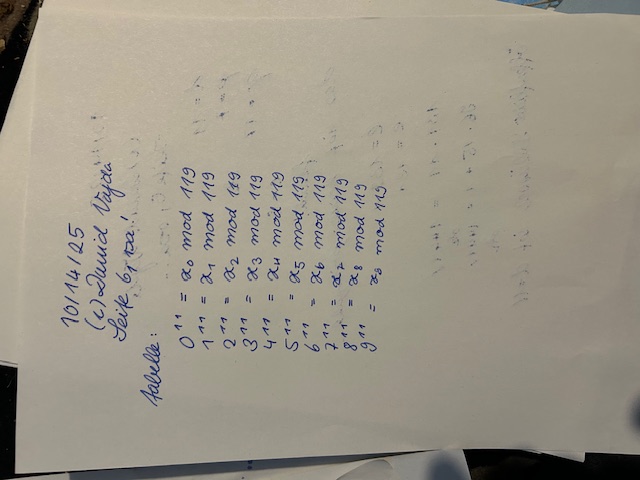 10/14/25
(c) David Vajda
Seite 6, rsa!
Tabelle:
0^11 = x0 mod 119
1^11 = x1 mod 119
2^11 = x2 mod 119
3^11 = x3 mod 119
4^11 = x4 mod 119
5^11 = x5 mod 119
6^11 = x6 mod 119
7^11 = x7 mod 119
8^11 = x8 mod 119
9^11 = x9 mod 119